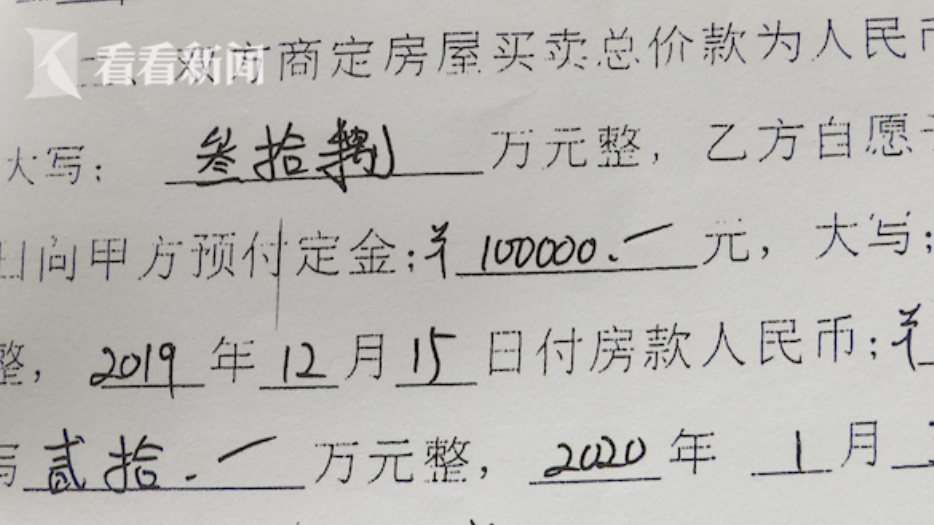 看看新闻
双方商定房屋买卖总价款为人民币
大写: 叁拾捌 万元整，乙方自愿
日向甲方预付定金;¥ 100000.— 元，大写;
整，2019 年 12 月 15 日付房款人民币;¥
写 贰拾.— 万元整，2020 年 1 月